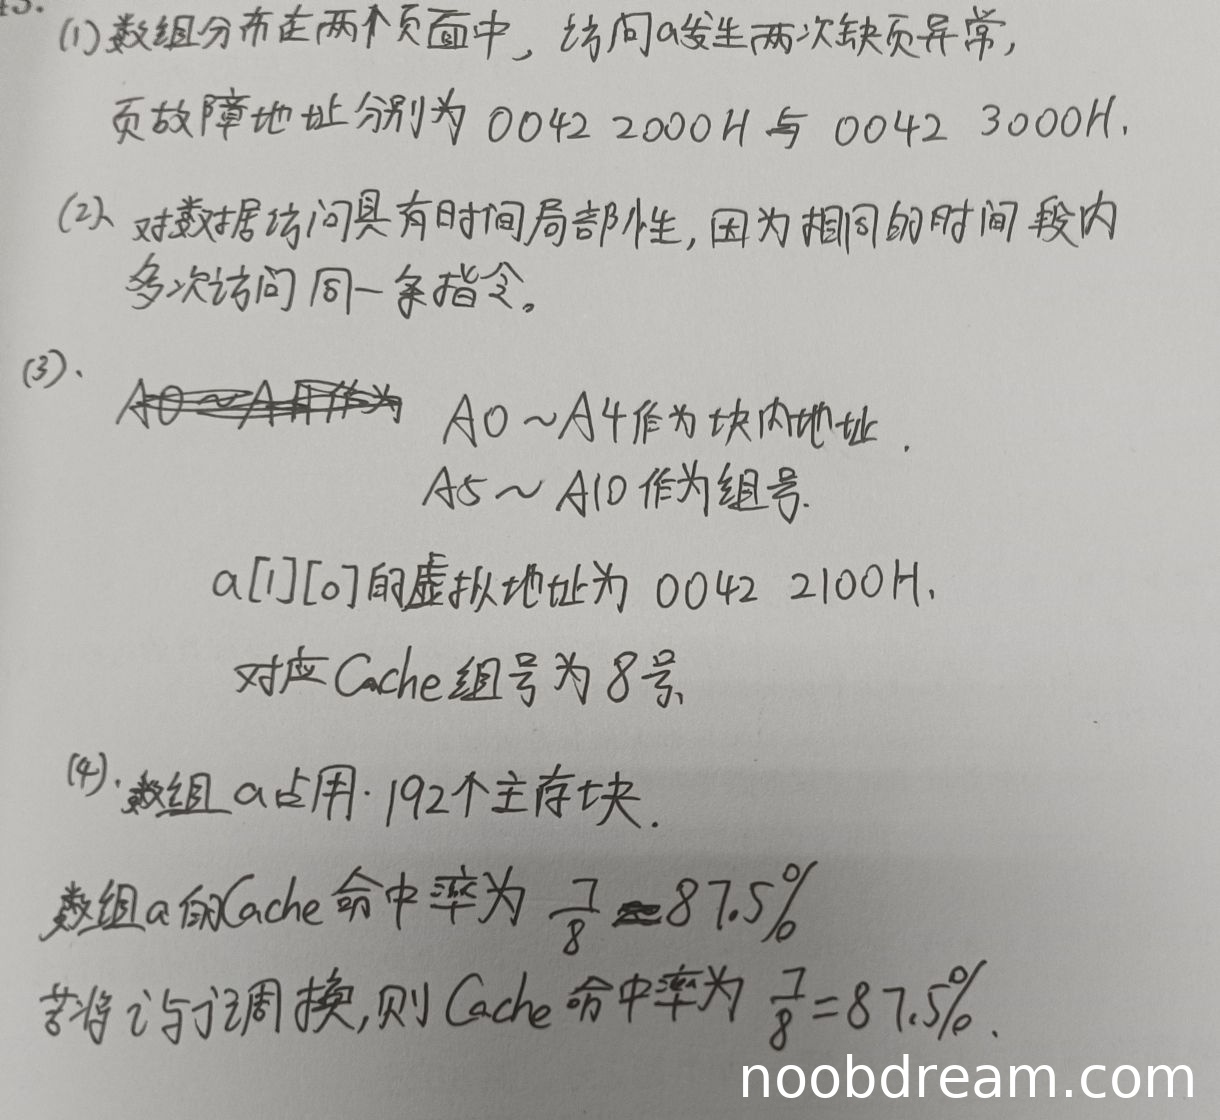 43.
(1) 数组分布在两个页面中，访问a发生两次缺页异常,
页故障地址分别为 0042 2000H 与 0042 3000H.
(2)、对数据访问具有时间局部性, 因为相同的时间段内
多次访问同一条指令。
(3)、
A0~A4作为块内地址.
A5~A10作为组号.
a[1][0]的虚拟地址为 0042 2100H.
对应Cache组号为8号、
(4). 数组a占用. 192个主存块.
数组a的Cache命中率为 7/8 = 87.5%
若将i与j调换,则Cache命中率为 7/8 = 87.5%.
noobdream.com